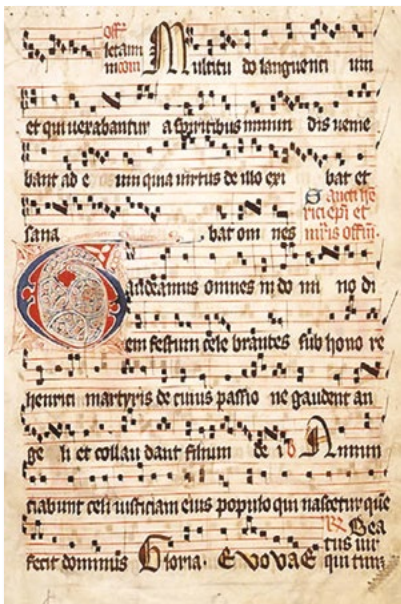 Off
letamini com Multitu do languenti um
et qui vexabantur a spiritibus inmun dis venie
bant ad e um quia virtus de illo exi bat et
sana bat om nes Sancti hen
rici epi et mris offm.
Gaudeamus omnes in do mi no di
em festum cele brantes sub hono re
henrici martyris de cuius passio ne gaudent an
ge li et collau dant filium de i Annun
ciabunt celi iusticiam eius populo qui nascetur que
fecit dominus Gloria. Evovae Bea
tus vir
qui tim